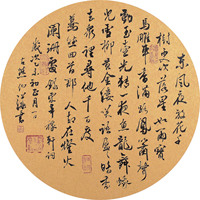 東風夜放花千
樹更吹落星如雨寶
馬雕車香滿路鳳簫聲
動玉壺光轉一夜魚龍舞蛾
兒雪柳黃金縷笑語盈盈暗香
去衆裡尋他千百度
驀然回首那人却在燈火
闌珊處 辛稼軒詞
歲次乙未 正月
書